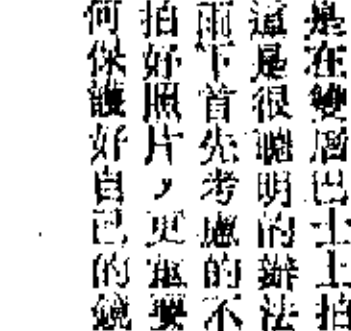 是在雙層巴士上拍
這是很聰明的辦法
雨下首先考慮的不
拍好照片，更重要
何保護好自己的鏡